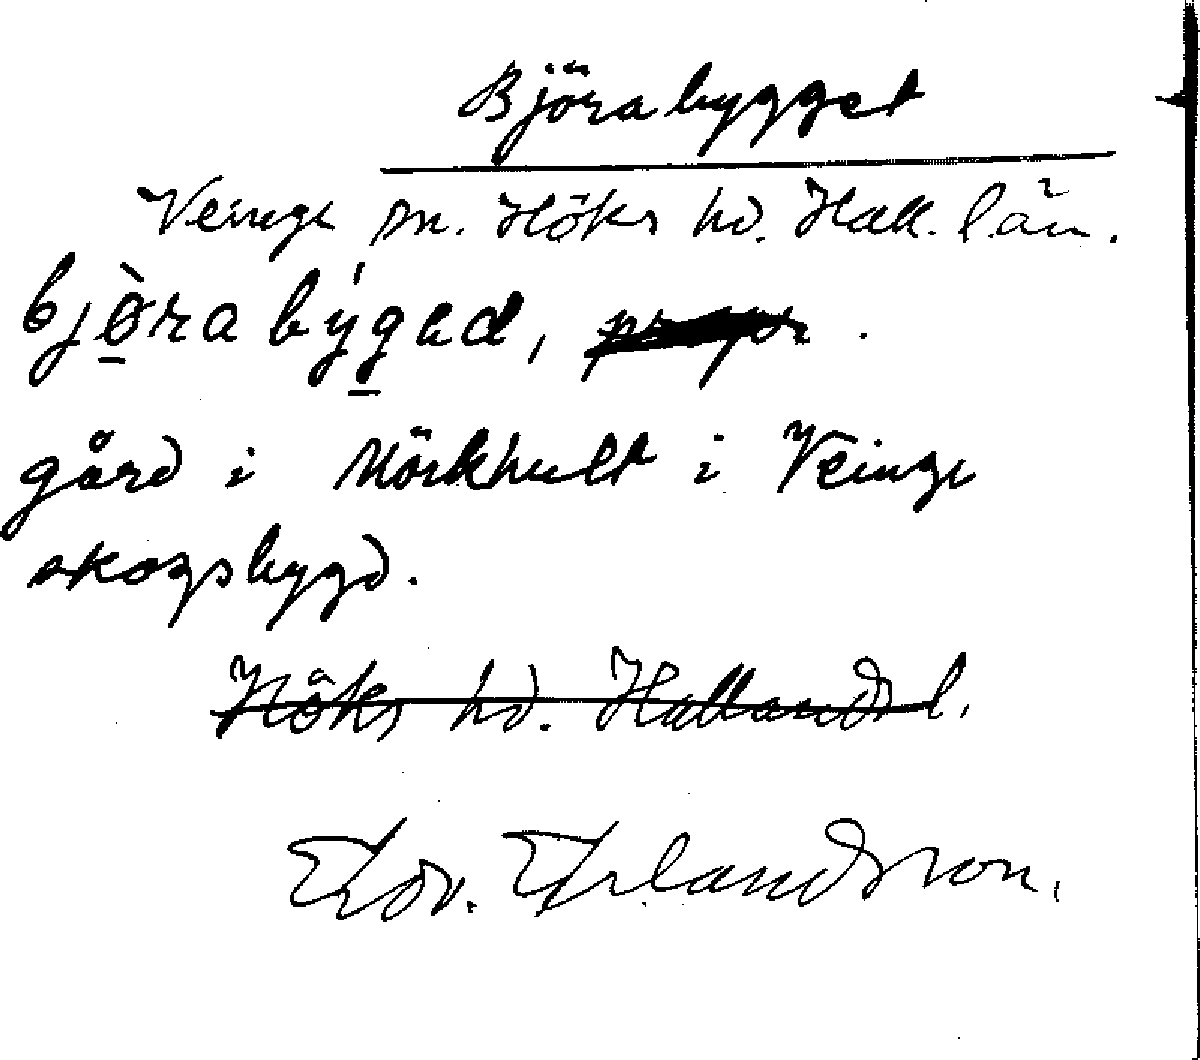 Björabygget
Veinge sn. Höks hd. Hall. län.
bjö̱̀rabýg̱ad,
gård i Mörkhult i Veinge
skogsbygd.
Höks hd. Hallands l.
Edv. Erlandsson.